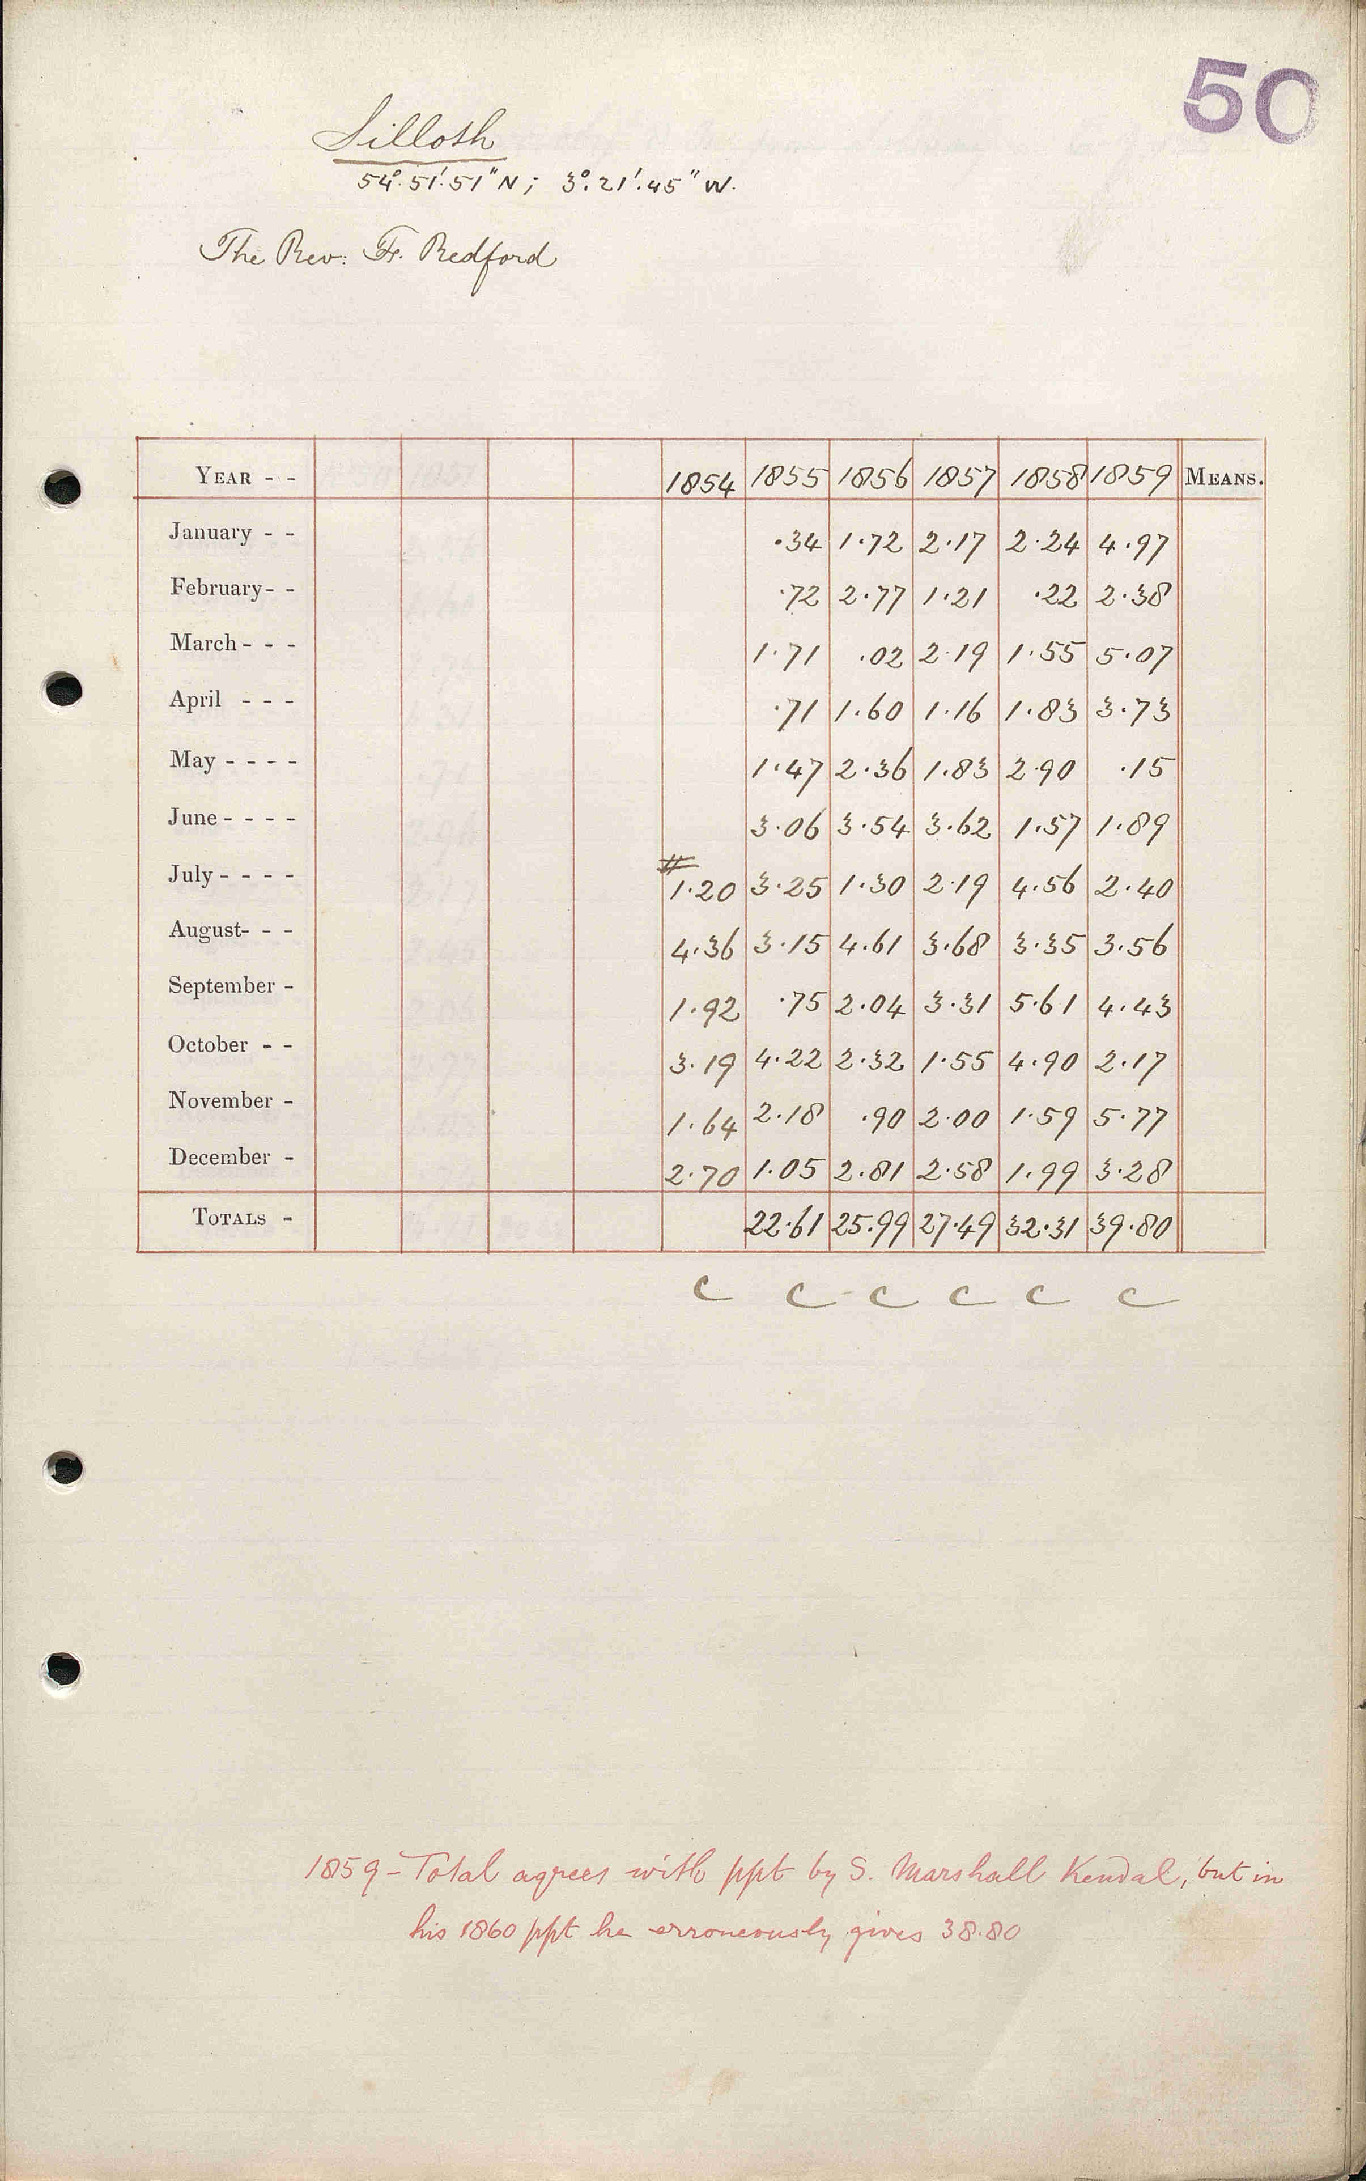 50
Silloth
54°.51'.51" N; 3°.21'.45" W.
The Rev: Fr. Redford
YEAR - - 1854 1855 1856 1857 1858 1859 MEANS.
January - - .34 1.72 2.17 2.24 4.97
February- - .72 2.77 1.21 .22 2.38
March - - - 1.71 .02 2.19 1.55 5.07
April - - - .71 1.60 1.16 1.83 3.73
May - - - - 1.47 2.36 1.83 2.90 .15
June - - - - 3.06 3.54 3.62 1.57 1.89
July - - - - # 1.20 3.25 1.30 2.19 4.56 2.40
August- - - 4.36 3.15 4.61 3.68 3.35 3.56
September - 1.92 .75 2.04 3.31 5.61 4.43
October - - 3.19 4.22 2.32 1.55 4.90 2.17
November - 1.64 2.18 .90 2.00 1.59 5.77
December - 2.70 1.05 2.81 2.58 1.99 3.28
TOTALS - 22.61 25.99 27.49 32.31 39.80
C C C C C C
1859 - Total agrees with ppt by S. Marshall Kendal, but in
his 1860 ppt he erroneously gives 38.80